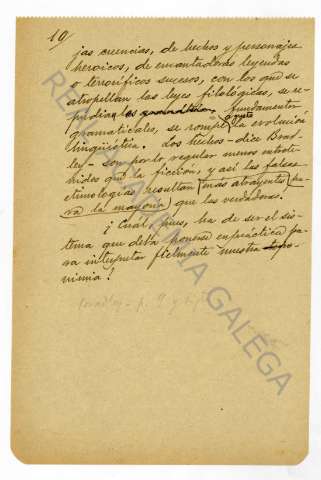 19/
jas creencias, de hechos y personajes
heroicos, de encantadoras leyendas
o terroríficos sucesos, con los que se
atropellan las leyes filológicas, se re-
pudian los gramatica fundamentos
gramaticales, se rompe y la evolución
lingüística. Los hechos - dice Brad-
ley - son por lo regular menos entrete-
nidos que la ficción, y así las falsas
etimologías resultan más atrayentes (pa-
ra la mayoría) que las verdaderas.
¡Cuál, pues, ha de ser el sis-
tema que deba ponerse en práctica pa-
ra interpretar fielmente nuestra topo-
nimia!
REAL ACADEMIA GALEGA